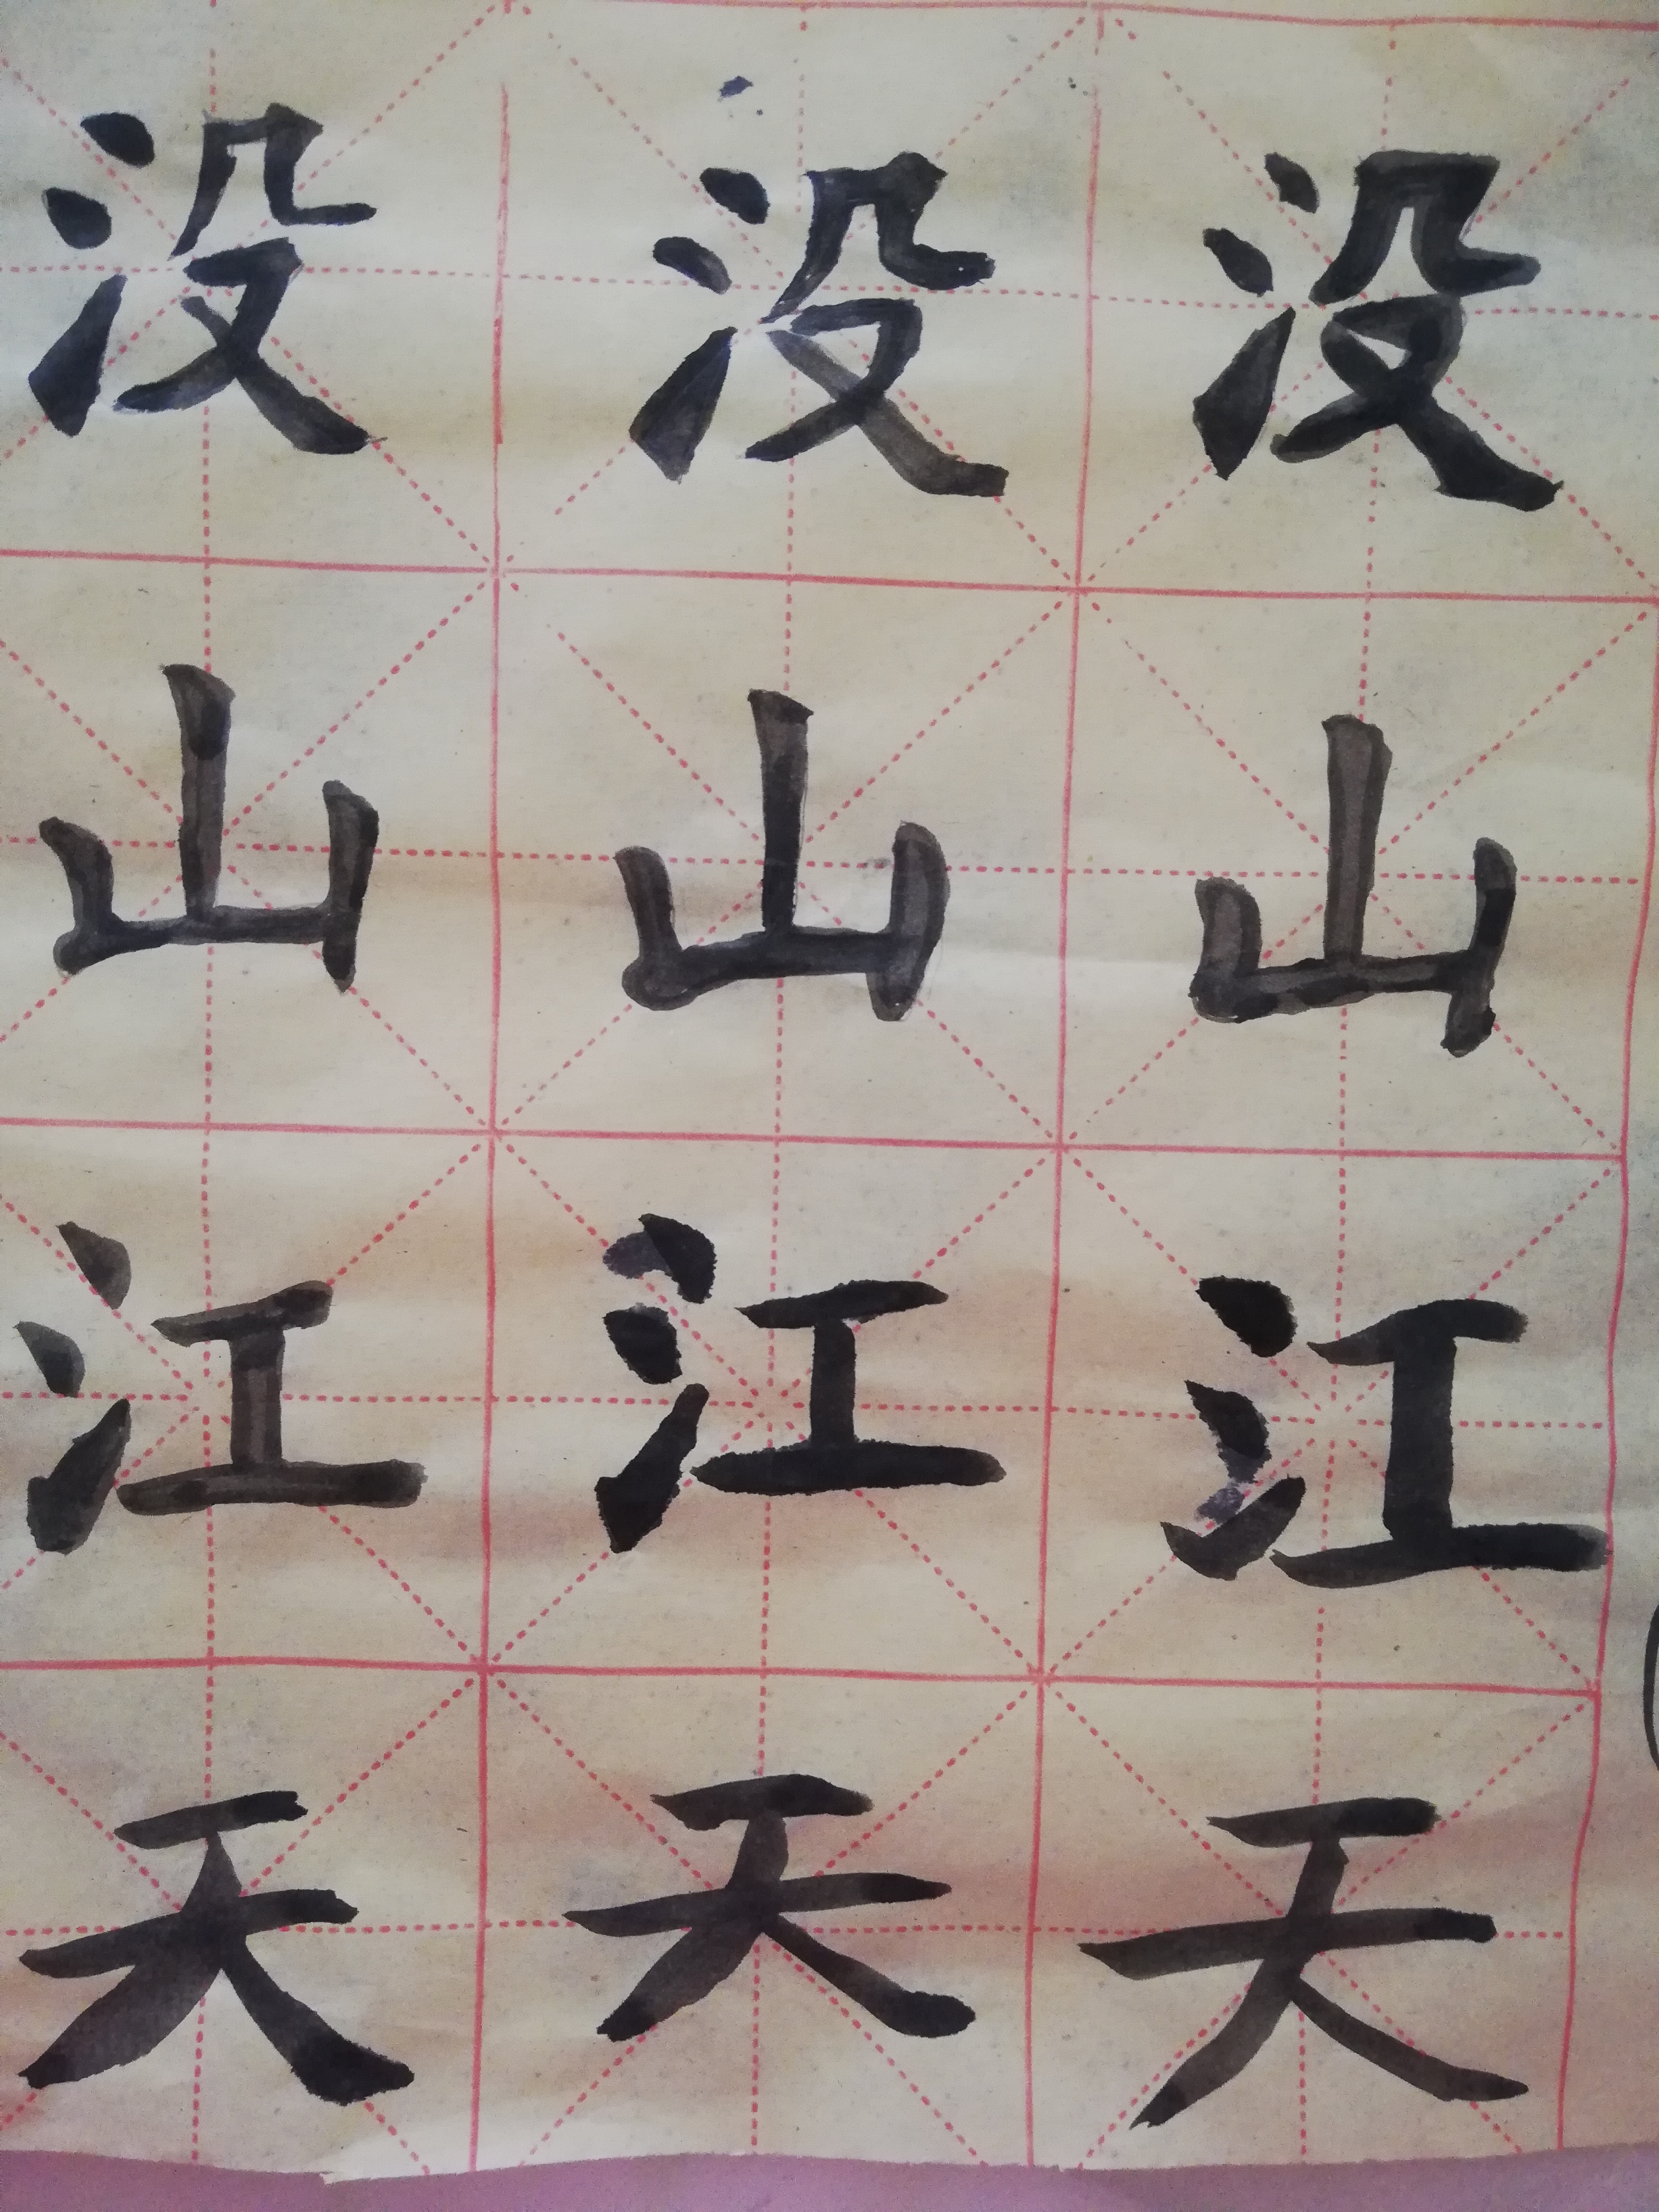 没没没
山山山
江江江
天天天